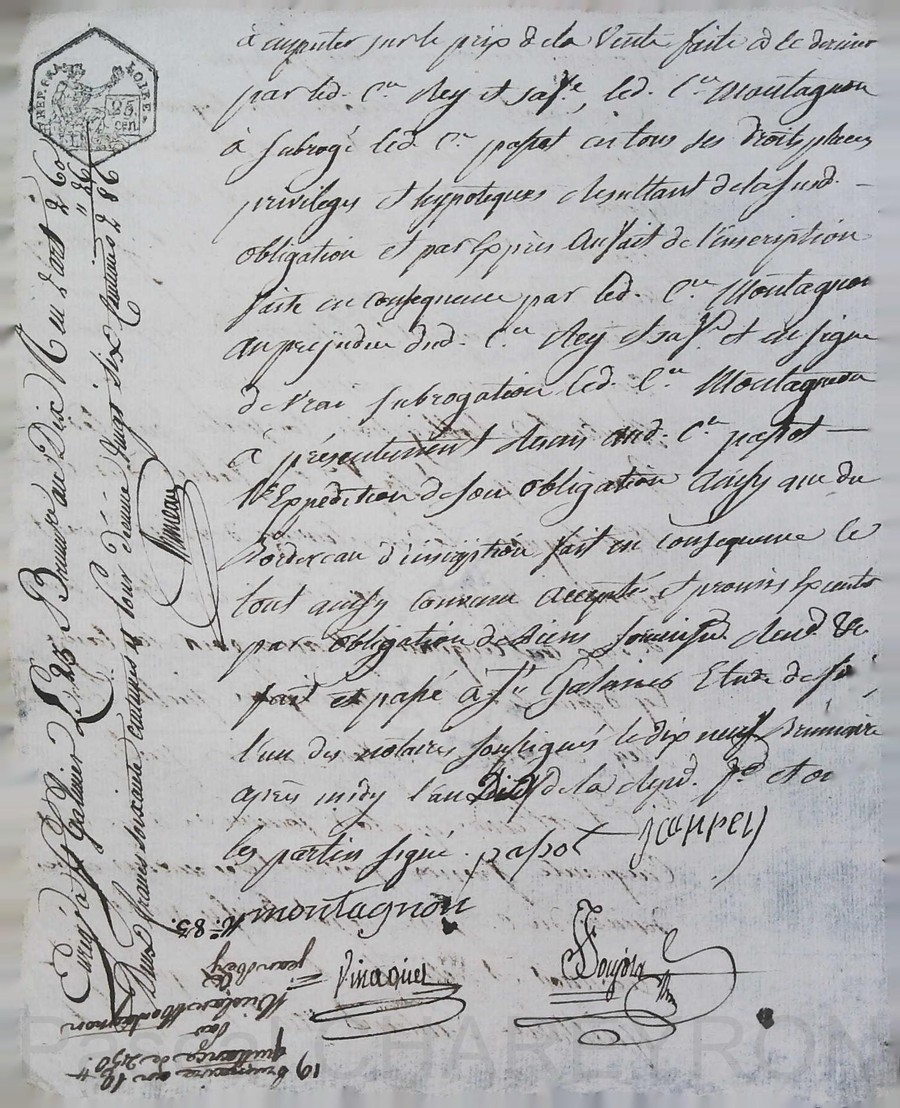 à imputer sur le prix de la Vente faite à ce dernier
par led. C.en Rey et sa f.e, led. C.en Montagnon
à subrogé led. C.en passot en tous ses droits places
privileges et hypoteques Resultant de la susd.
obligation et par Exprès au fait de l'inscription
faite en consequence par led. C.en Montagnon
au prejudice dud. C.en Rey et sa f.e et en signe
de vrai subrogation led. C.en Montagnon
à présentement Remis aud. C.en passot
Expédition de son obligation ainsy que du
Bordereau d'inscription fait en consequence le
tout ainsy convenu accepté et promis
par obligation de Biens Rend. &c
fait et passé à S.t Galmier Etude de
l'un des notaires soussignés le dix neuf Brumaire
après midy l'an Dix de la Repub. f.se et ont
les parties signé. passot jean rey
montagnon
Vinaquet
Enreg. à S.t Galmier Le 25 Brumaire an Dix R en 2 art 2 60
" 26
Deux francs soixante centimes et pour decime vingt six Centimes 2 86
Simeon
REP. FRA.
LOIRE
25
cen
N.o 83.
19 brumaire an 10
quittance de 250.
par
Montagnon
à
jean Rey
Pascal CHAMBRION